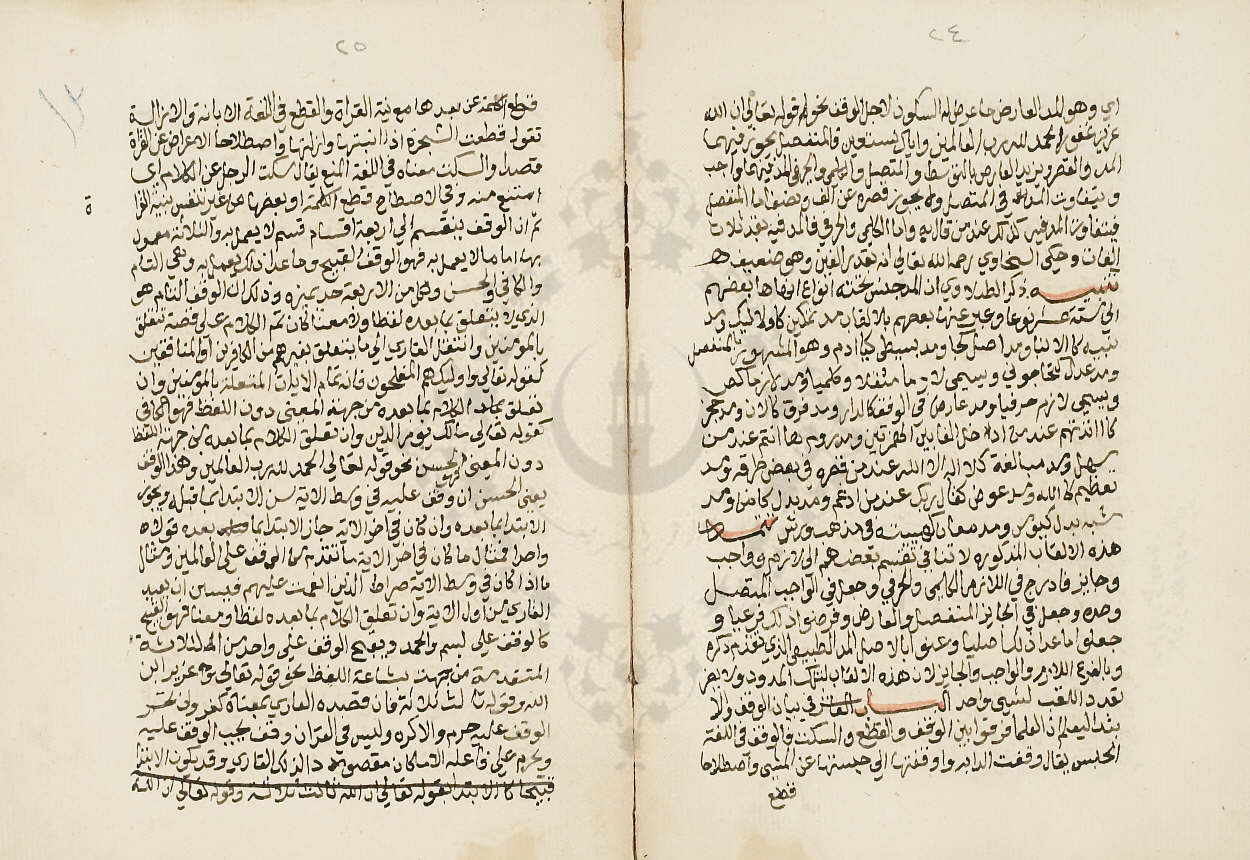 ٢٤
اي وهو المد العارض ما عرض له السكون لاجل الوقف نحو قوله تعالى ان الله
عزيز غفور الحمد لله رب العالمين واياك نستعين والمنفصل يجوز فيهما
المد والقصر ويزيد العارض بالتوسط والمتصل والكلمي والحرفي المد فيهما واجب
ويتفاوت المد في المتصل ولا يجوز قصره عن الف ونصف اما المنفصل
فيتفاوت المد فيه كذلك عند من قال به واما الكلمي والحرفي فالمد فيه بقدر ثلاث
الفات وحكى السخاوي رحمه الله تعالى انه بقدر الفين وهو ضعيف
تنبيه ذكر الطبلاوي ان المد جنس تحته انواع انهاها بعضهم
الى ستة عشر نوعا وعبر عنها بعضهم بالالقاب مد تمكين كاوليك ومد
بنية كالانبيا ومد اصل كجا ومد بسط كيا ادم وهو المشهور بالمنفصل
ومد عدل كتحاجوني ويسمى لازما مثقلا وكلميا ومد لازم كص
ويسمى لازم حرفيا ومد عارض في الوقف كالدار ومد فرق كالان ومد حجز
كاانذرتهم عند من ادخل الفا بين الهمزتين ومد روم ها انتم عند من
سهل ومد مبالغة كلا اله الا الله عند من قصره في بعض طرقه ومد
تعظيم كالله ومد عوض كقال ربك عند من ادغم ومد بدل كامن ومد
شبه بدل كيوس ومد معان كهيئة في مذهب ورش تتمة
هذه الالقاب المذكوره لا تنافي تقسيم بعضهم الى لازم وواجب
وجايز فادرج في اللازم الكلمي والحرفي وجعل في الواجب المتصل
وحده وجعل في الجايز المنفصل والعارض وفرضوا ذلك فرعيا و
جعلوا ما عدا ذلك اصليا وعنوا بالاصل المد الطبيعي الذي تقدم ذكره
وبالفرع اللازم والواجب والجايز لان هذه الالقاب لتلك المدود ولا يضر
تعدد اللقب لشي واحد البـاب في بيان الوقف والا
بتدا ليعلم ان العلما فرقوا بين الوقف والقطع والسكت فالوقف في اللغة
الحبس يقال وقفت الدابه واوقفتها اي حبستها عن المشي واصطلاحا
قطع
٢٥
قطع الكلمة عن بعدها مع نية القراة والقطع في اللغة الابانة والازالة
تقول قطعت الشجرة اذا ابنتها وازلتها واصطلاحا الاعراض عن القراة
قصدا والسكت معناه في اللغة المنع يقال سكت الرجل عن الكلام اي
امتنع منه وفي الاصطلاح قطع الكلمة او بعضها من غير تنفس بنية القرا
ة
ثم ان الوقف ينقسم الى اربعة اقسام قسم لا يعمل به والثلاثة معمول
بها اما ما لا يعمل به فهو الوقف القبيح وما عدا ذلك يعمل به وهي التام
والكافي والحسن ولكل من الاربعة حد يميزه وذلك ان الوقف التام هو
الذي لا يتعلق بما بعده لفظا ولا معنا كان تم الكلام على قصة تتعلق
بالمومنين وانتقل القاري الى ما يتعلق بغيرهم من الكافرين او المنافقين
كقوله تعالى واوليك هم المفلحون فانه تمام الايات المتعلقة بالمومنين وان
تعلق الكلام بما بعده من جهة المعنى دون اللفظ فهو الكافي
كقوله تعالى مالك يوم الدين وان تعلق الكلام بما بعده من جهة اللفظ
دون المعنى فالحسن نحو قوله تعالى الحمد لله رب العالمين وهذا الوقف
يعني الحسن ان وقف عليه في وسط الاية سن الابتدا بما قبله ويجوز
الابتدا بما بعده وان كان في اخر الاية جاز الابتدا بما بعده قولا
واحدا فمثال ما كان في اخر الاية ما تقدم من الوقف على العالمين ومثال
ما اذا كان في وسط الاية صراط الذين انعمت عليهم فيسن ان يعيد
القاري من اول الاية وان تعلق الكلام بما بعده لفظا ومعنا فهو القبيح
كالوقف على بسم والحمد ويقبح الوقف على واحد من الثلاثة
المتقدمة من جهة بشاعة اللفظ نحو قوله تعالى عزير ابن
الله وقوله ثالث ثلاثة فان قصده القاري بمعناه كفر وان تحتر
الوقف عليه حرم والا كره وليس في القران وقف يجب الوقف عليه
ويحرم على فاعله الا ما كان مقصود ذلك القاري وقد يكون الابتدا
قبيحا كالابتدا بقوله تعالى ان الله ثالث ثلاثة وقوله تعالى ان الله